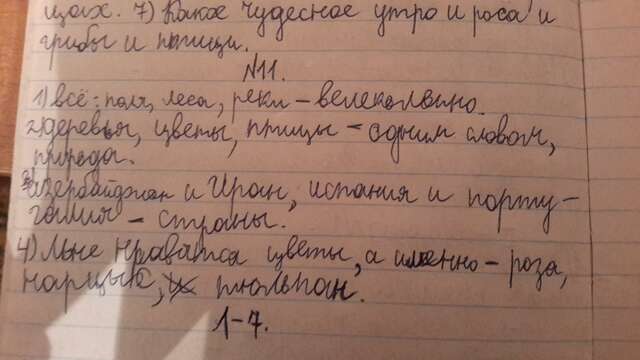 щах. 7) Какое чудесное утро и роса и
грибы и птици.
№11.
1) всё: поля, леса, реки - велеколвино.
2) деревья, цветы, птицы - одним словом,
природа.
3) Азербайджан и Иран, испания и порту-
галия - страны.
4) Мне нравятся цветы, а именно - роза,
нарцыс, тюльпан.
1-7.